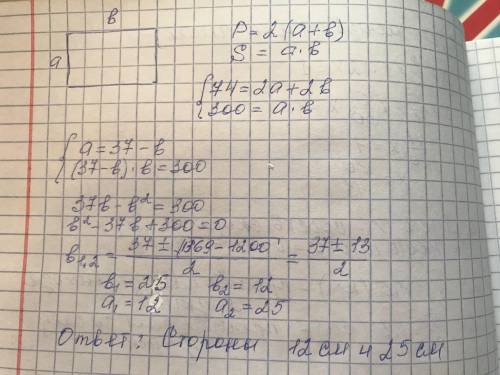 в
a
P = 2(a+в)
S = a·в
{74 = 2a+2в
{300 = a·в
{a = 37-в
{(37-в)·в = 300
37в - в² = 300
в² - 37в + 300 = 0
в₁,₂ = (37 ± √1369-1200)/2 = (37 ± 13)/2
в₁ = 25 в₂ = 12
a₁ = 12 a₂ = 25
Ответ: Стороны 12 см и 25 см